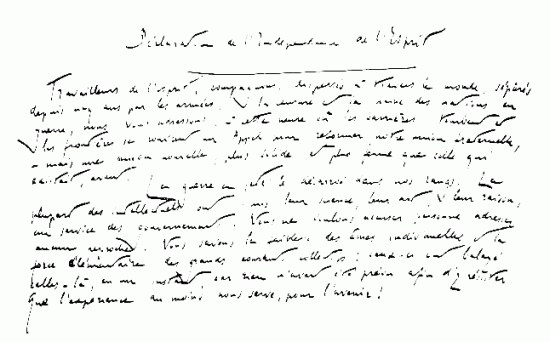 Déclaration de l'Indépendance de l'Esprit
Travailleurs de l'esprit, compagnons dispersés à travers le monde, séparés
depuis cinq ans par les armées, la censure et la haine des nations en
guerre, nous vous adressons, à cette heure où les barrières tombent et
les frontières se rouvrent un Appel pour reformer notre union fraternelle,
- mais une union nouvelle, plus solide et plus ferme que celle qui
existait avant.
La guerre a jeté le désarroi dans nos rangs. La
plupart des intellectuels ont mis leur science, leur art, leur raison,
au service des gouvernements. Nous ne voulons accuser personne, adresser
aucun reproche. Nous savons la faiblesse des âmes individuelles et la
force élémentaire des grands courants collectifs : ceux-ci ont balayé
celles-là, en un instant car rien n'avait été prévu afin d'y résister
Que l'expérience au moins nous serve, pour l'avenir !